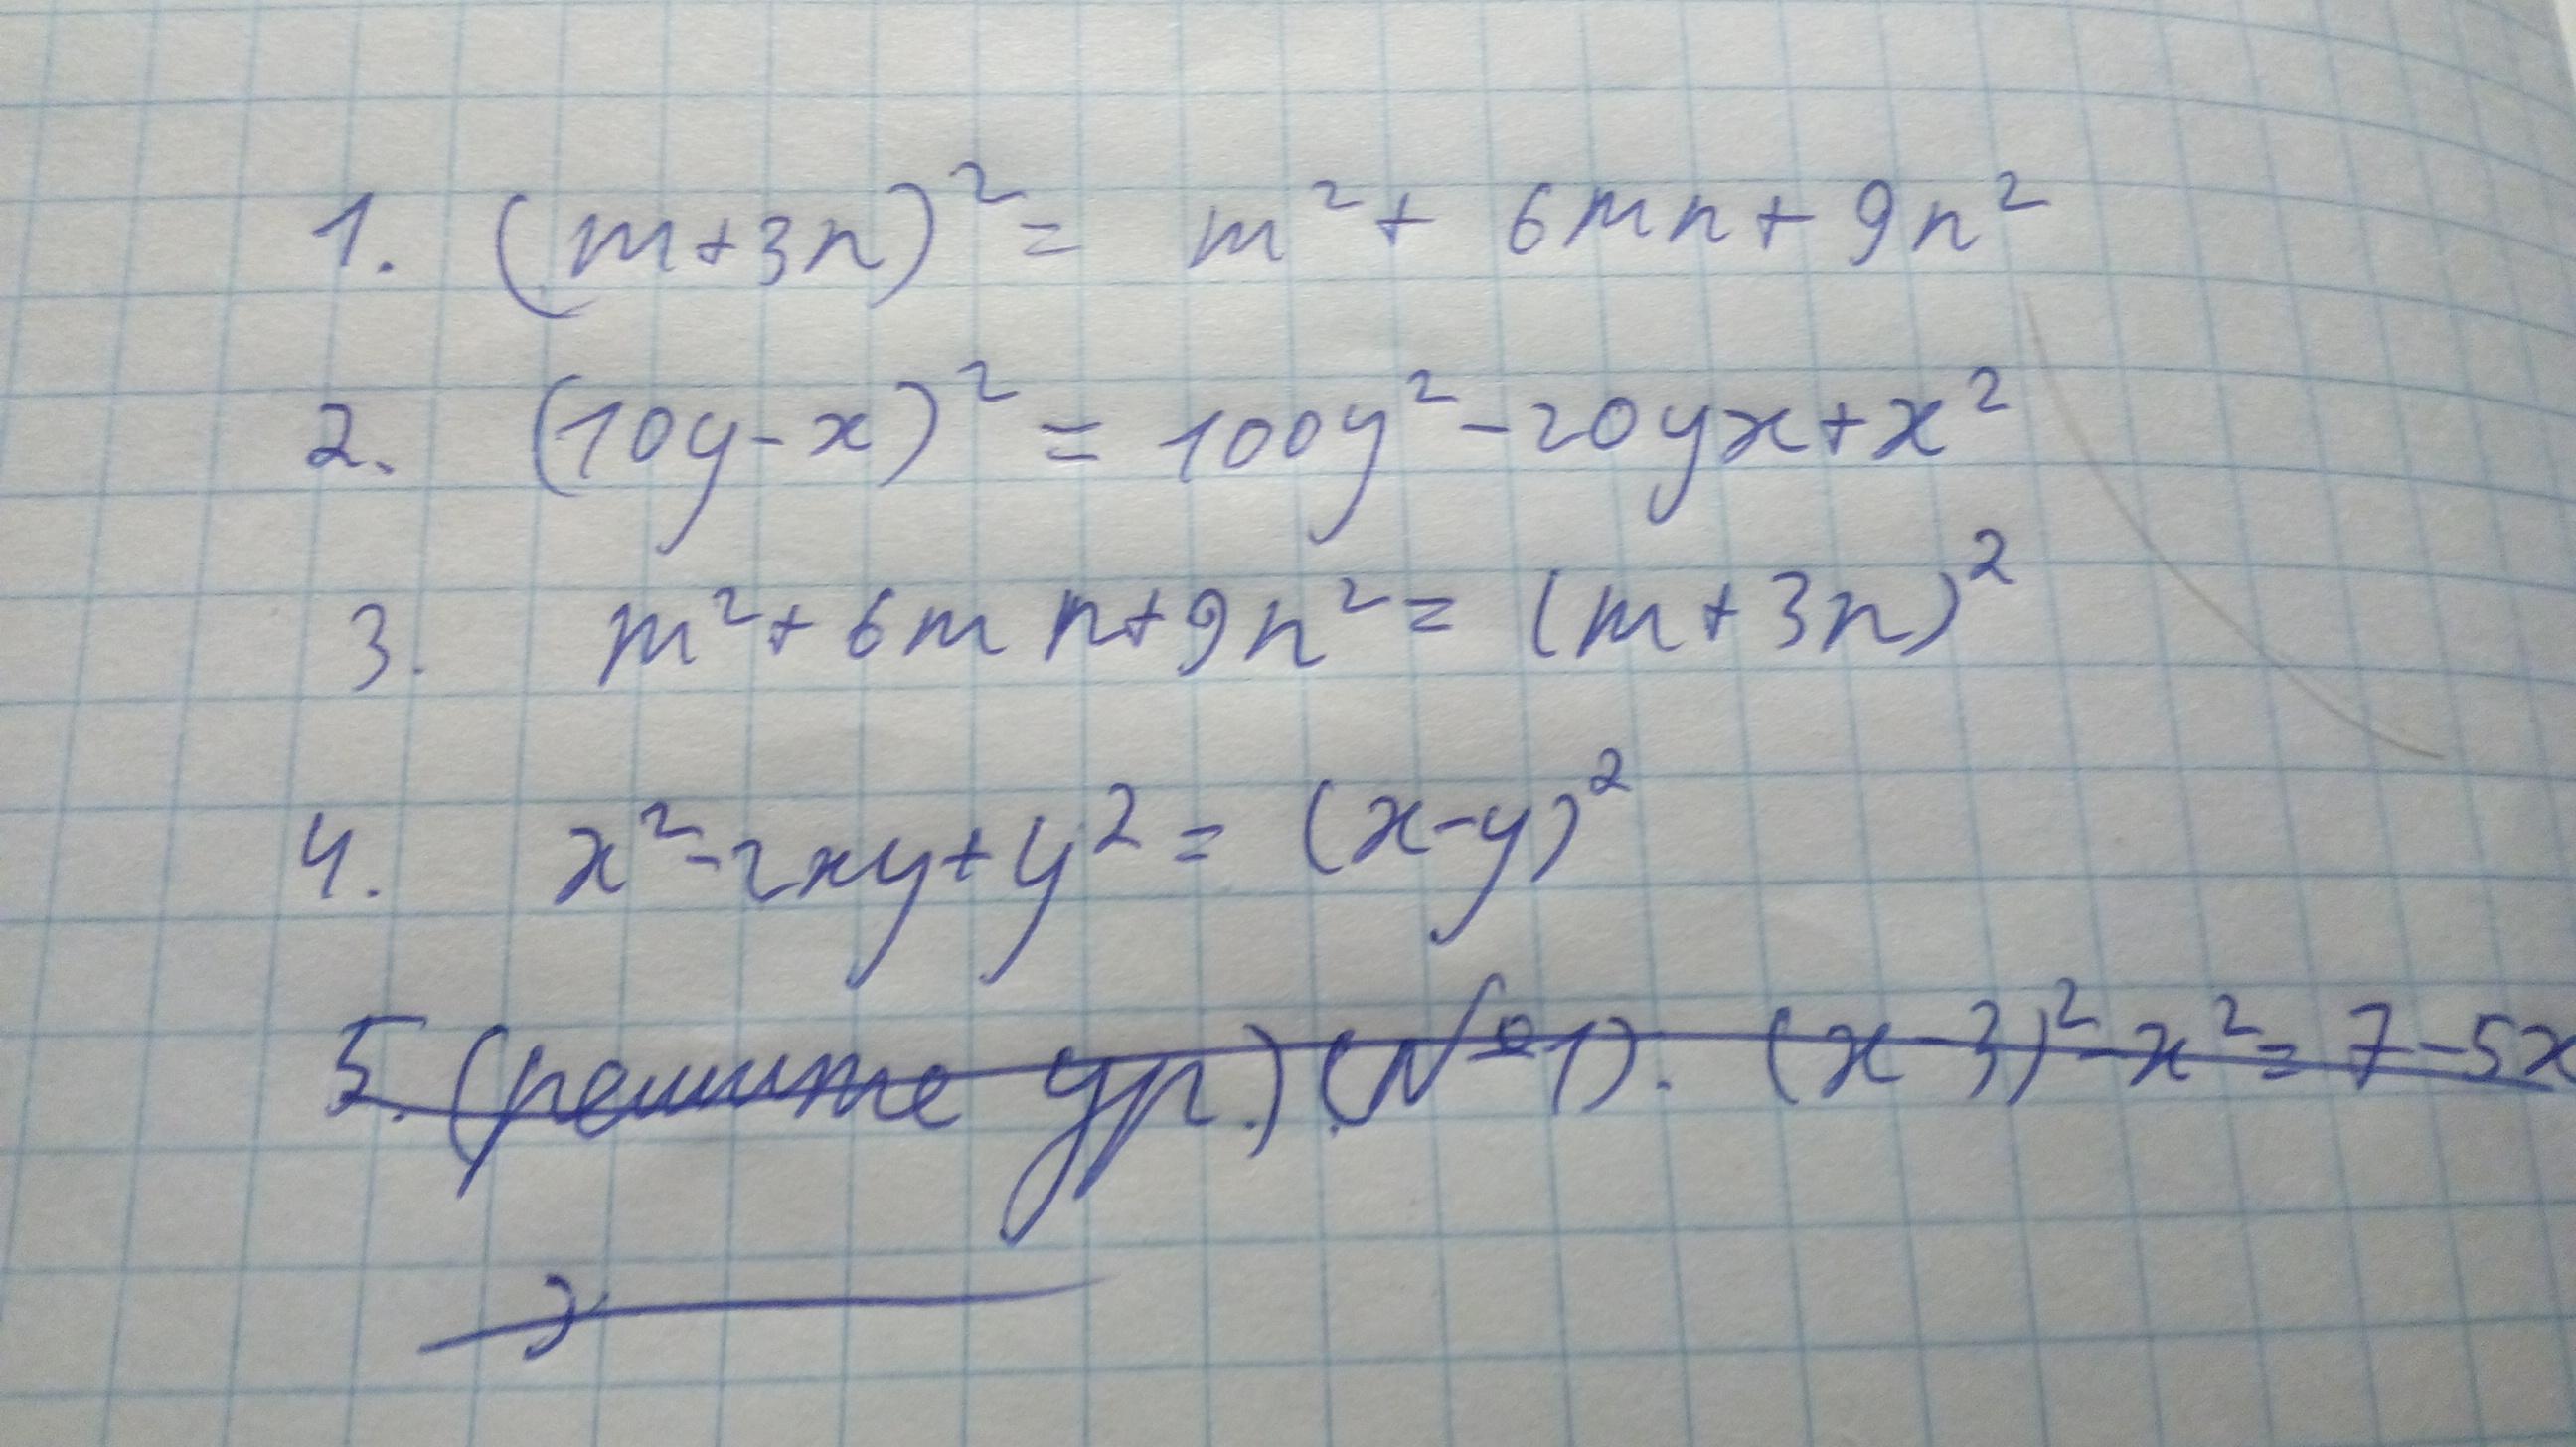 1. (m+3n)² = m² + 6mn + 9n²
2. (10y-x)² = 100y² - 20yx + x²
3. m² + 6mn + 9n² = (m+3n)²
4. x² - 2xy + y² = (x-y)²
5. (решите ур.) (№1). (x-3)² - x² = 7-5x